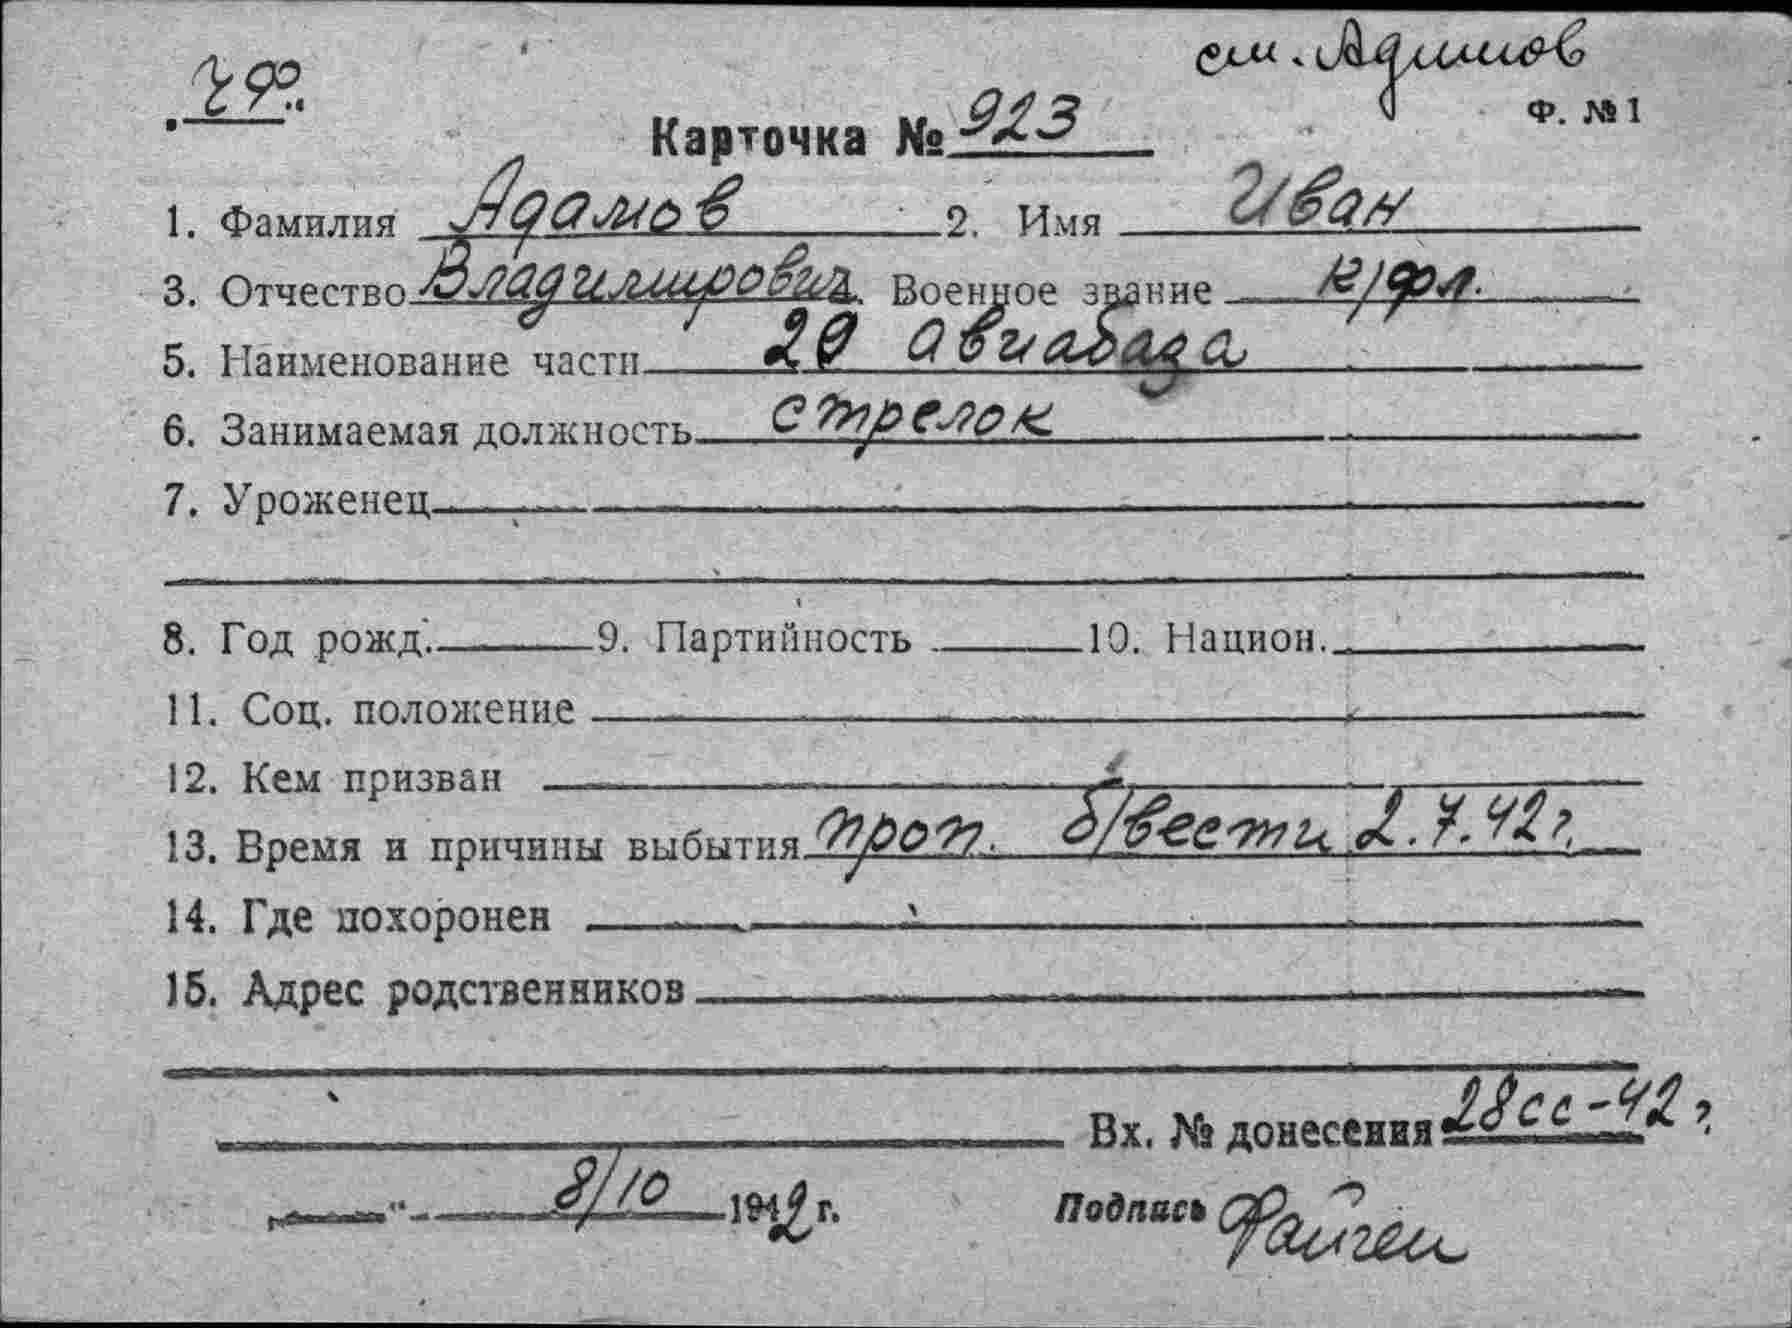 см. Адимов
Ф. № 1
Карточка № 923
1. Фамилия Адамов 2. Имя Иван
3. Отчество Владимирович. Военное звание к/фл.
5. Наименование части 20 авиабаза
6. Занимаемая должность стрелок
7. Уроженец
8. Год рожд. 9. Партийность 10. Национ.
11. Соц. положение
12. Кем призван
13. Время и причины выбытия проп. б/вести 2.7.42 г.
14. Где похоронен
15. Адрес родственников
Вх. № донесения 28сс-42 г.
" 8/10 1942 г. Подпись